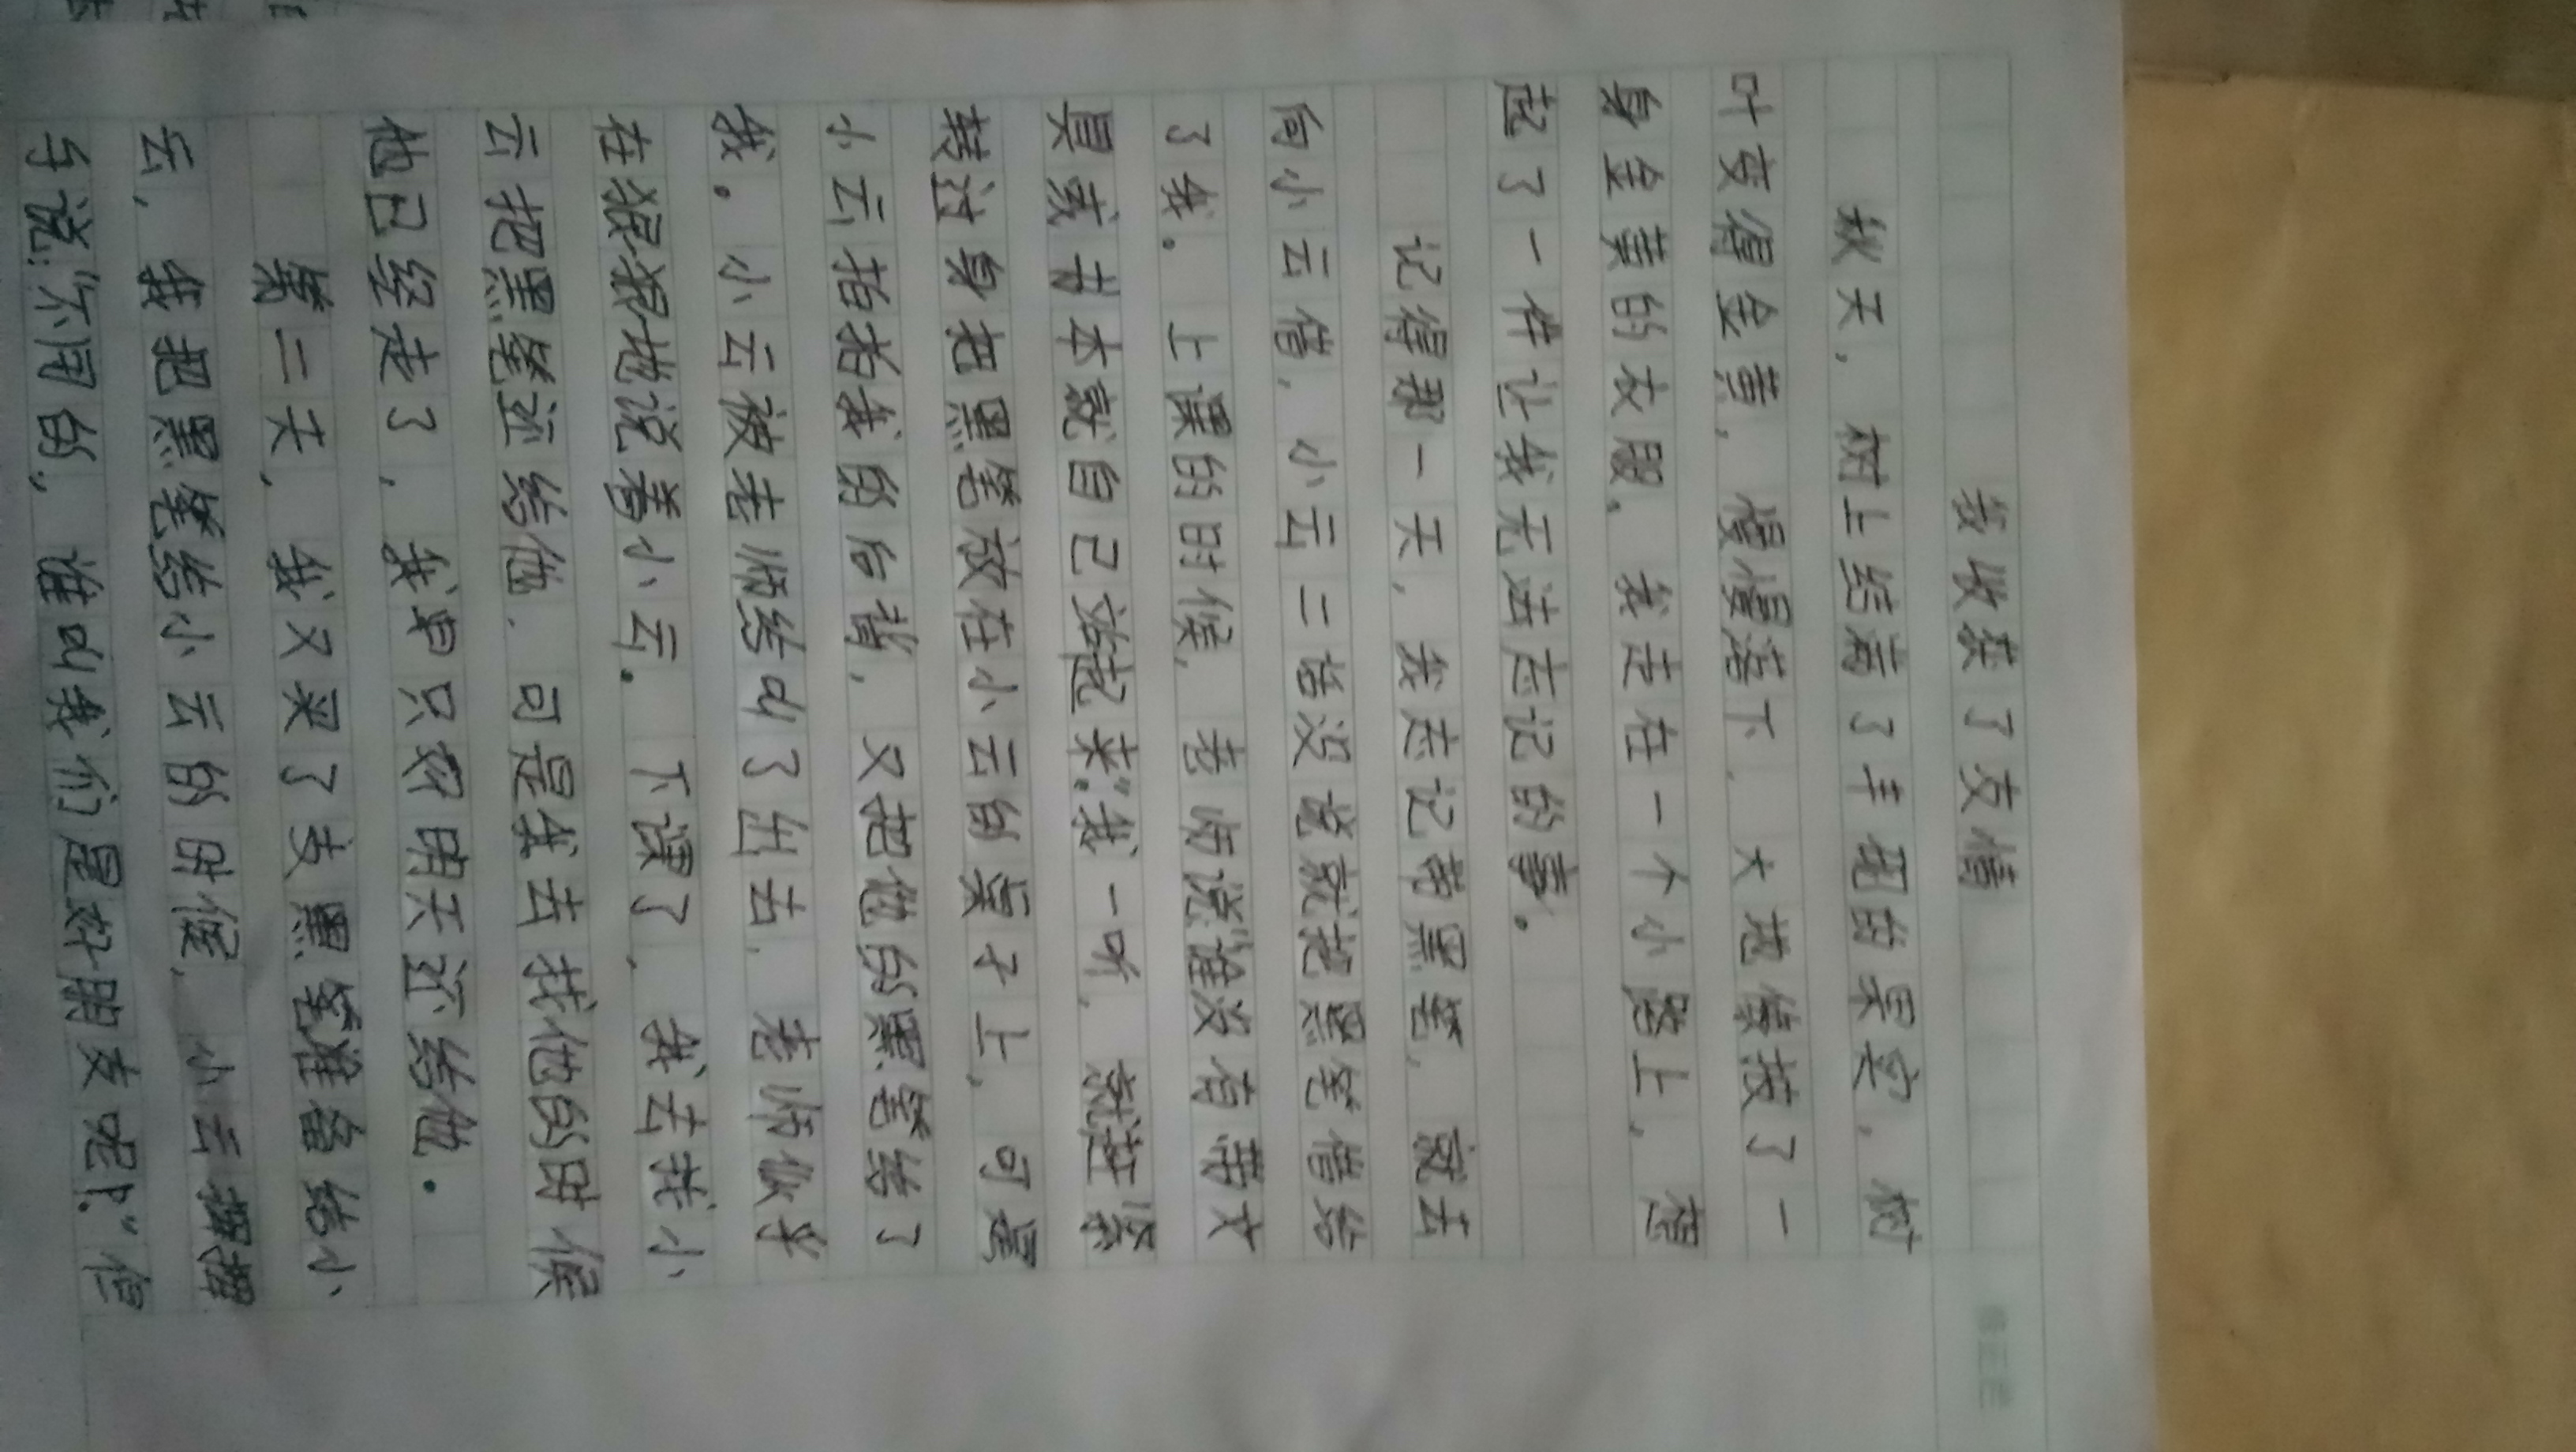 我收获了友情
秋天，树上结满了丰硕的果实，树
叶变得金黄，慢慢落下，大地像披了一
身金黄的衣服，我走在一个小路上，想
起了一件让我无法忘记的事。
记得那一天，我忘记带黑笔，就去
向小云借，小云二话没说就把黑笔借给
了我。上课的时候，老师说：“谁没有带文
具或书本就自己站起来。”我一听，就赶紧
转过身把黑笔放在小云的桌子上，可是
小云指指我的后背，又把他的黑笔给了
我。小云被老师给叫了出去，老师似乎
在狠狠地说着小云。下课了，我去找小
云把黑笔还给他，可是我去找他的时候
他已经走了，我只好明天还给他。
第二天，我又买了支黑笔准备给小
云，我把黑笔给小云的时候，小云摆摆
手说：“不用的，谁叫我们是好朋友呢！”但